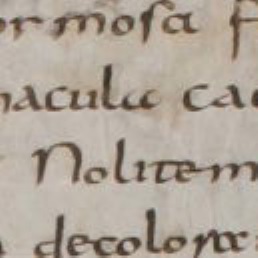 ormosa f
macula ca
Nolitem
decolora